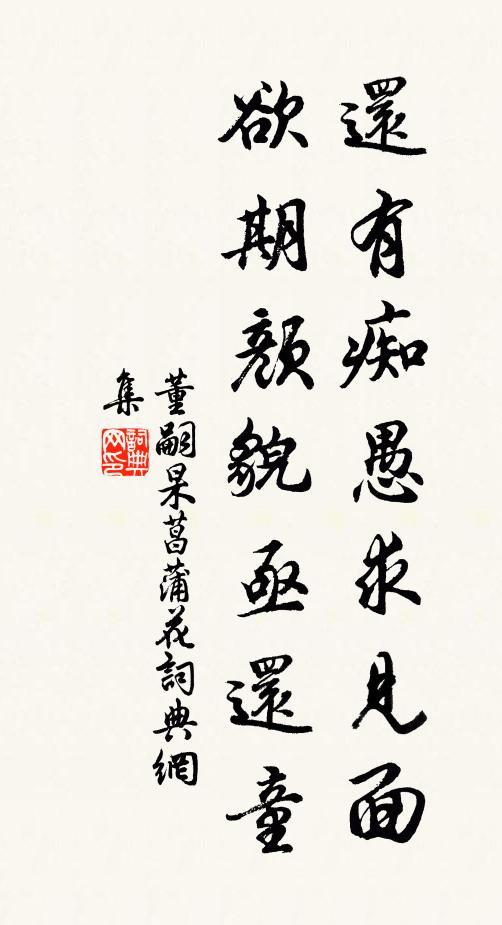 還有痴愚求見面
欲期顏貌亟還童
董嗣杲菖蒲花詞典網
集
詞典
网印